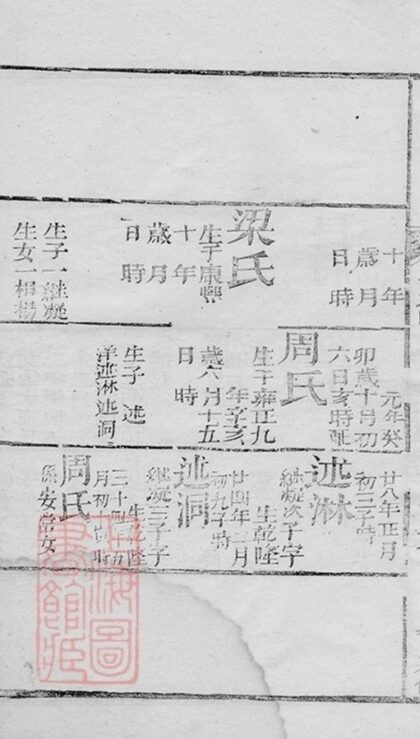 十年
歲月
日時
梁氏
生于康熙
十年
歲月
日時
生子一継凝
生女一相楊
元年癸
卯歲十月初
六日亥時
周氏
生于雍正九
年辛亥
歲六月十五
日時
生子述
洋述淋述洞
廿八年正月
初三子時
述淋
継凝次子字
生乾隆
廿四年二月
初九子時
述洞
継凝三子字
生乾隆
三十四年九
月初十時
周氏
係安常女
海圖
書館藏